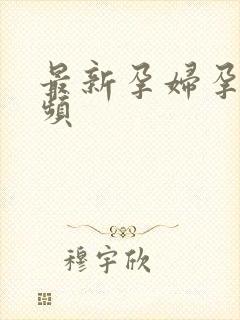 最新孕婦孕
頻
穆宇欣